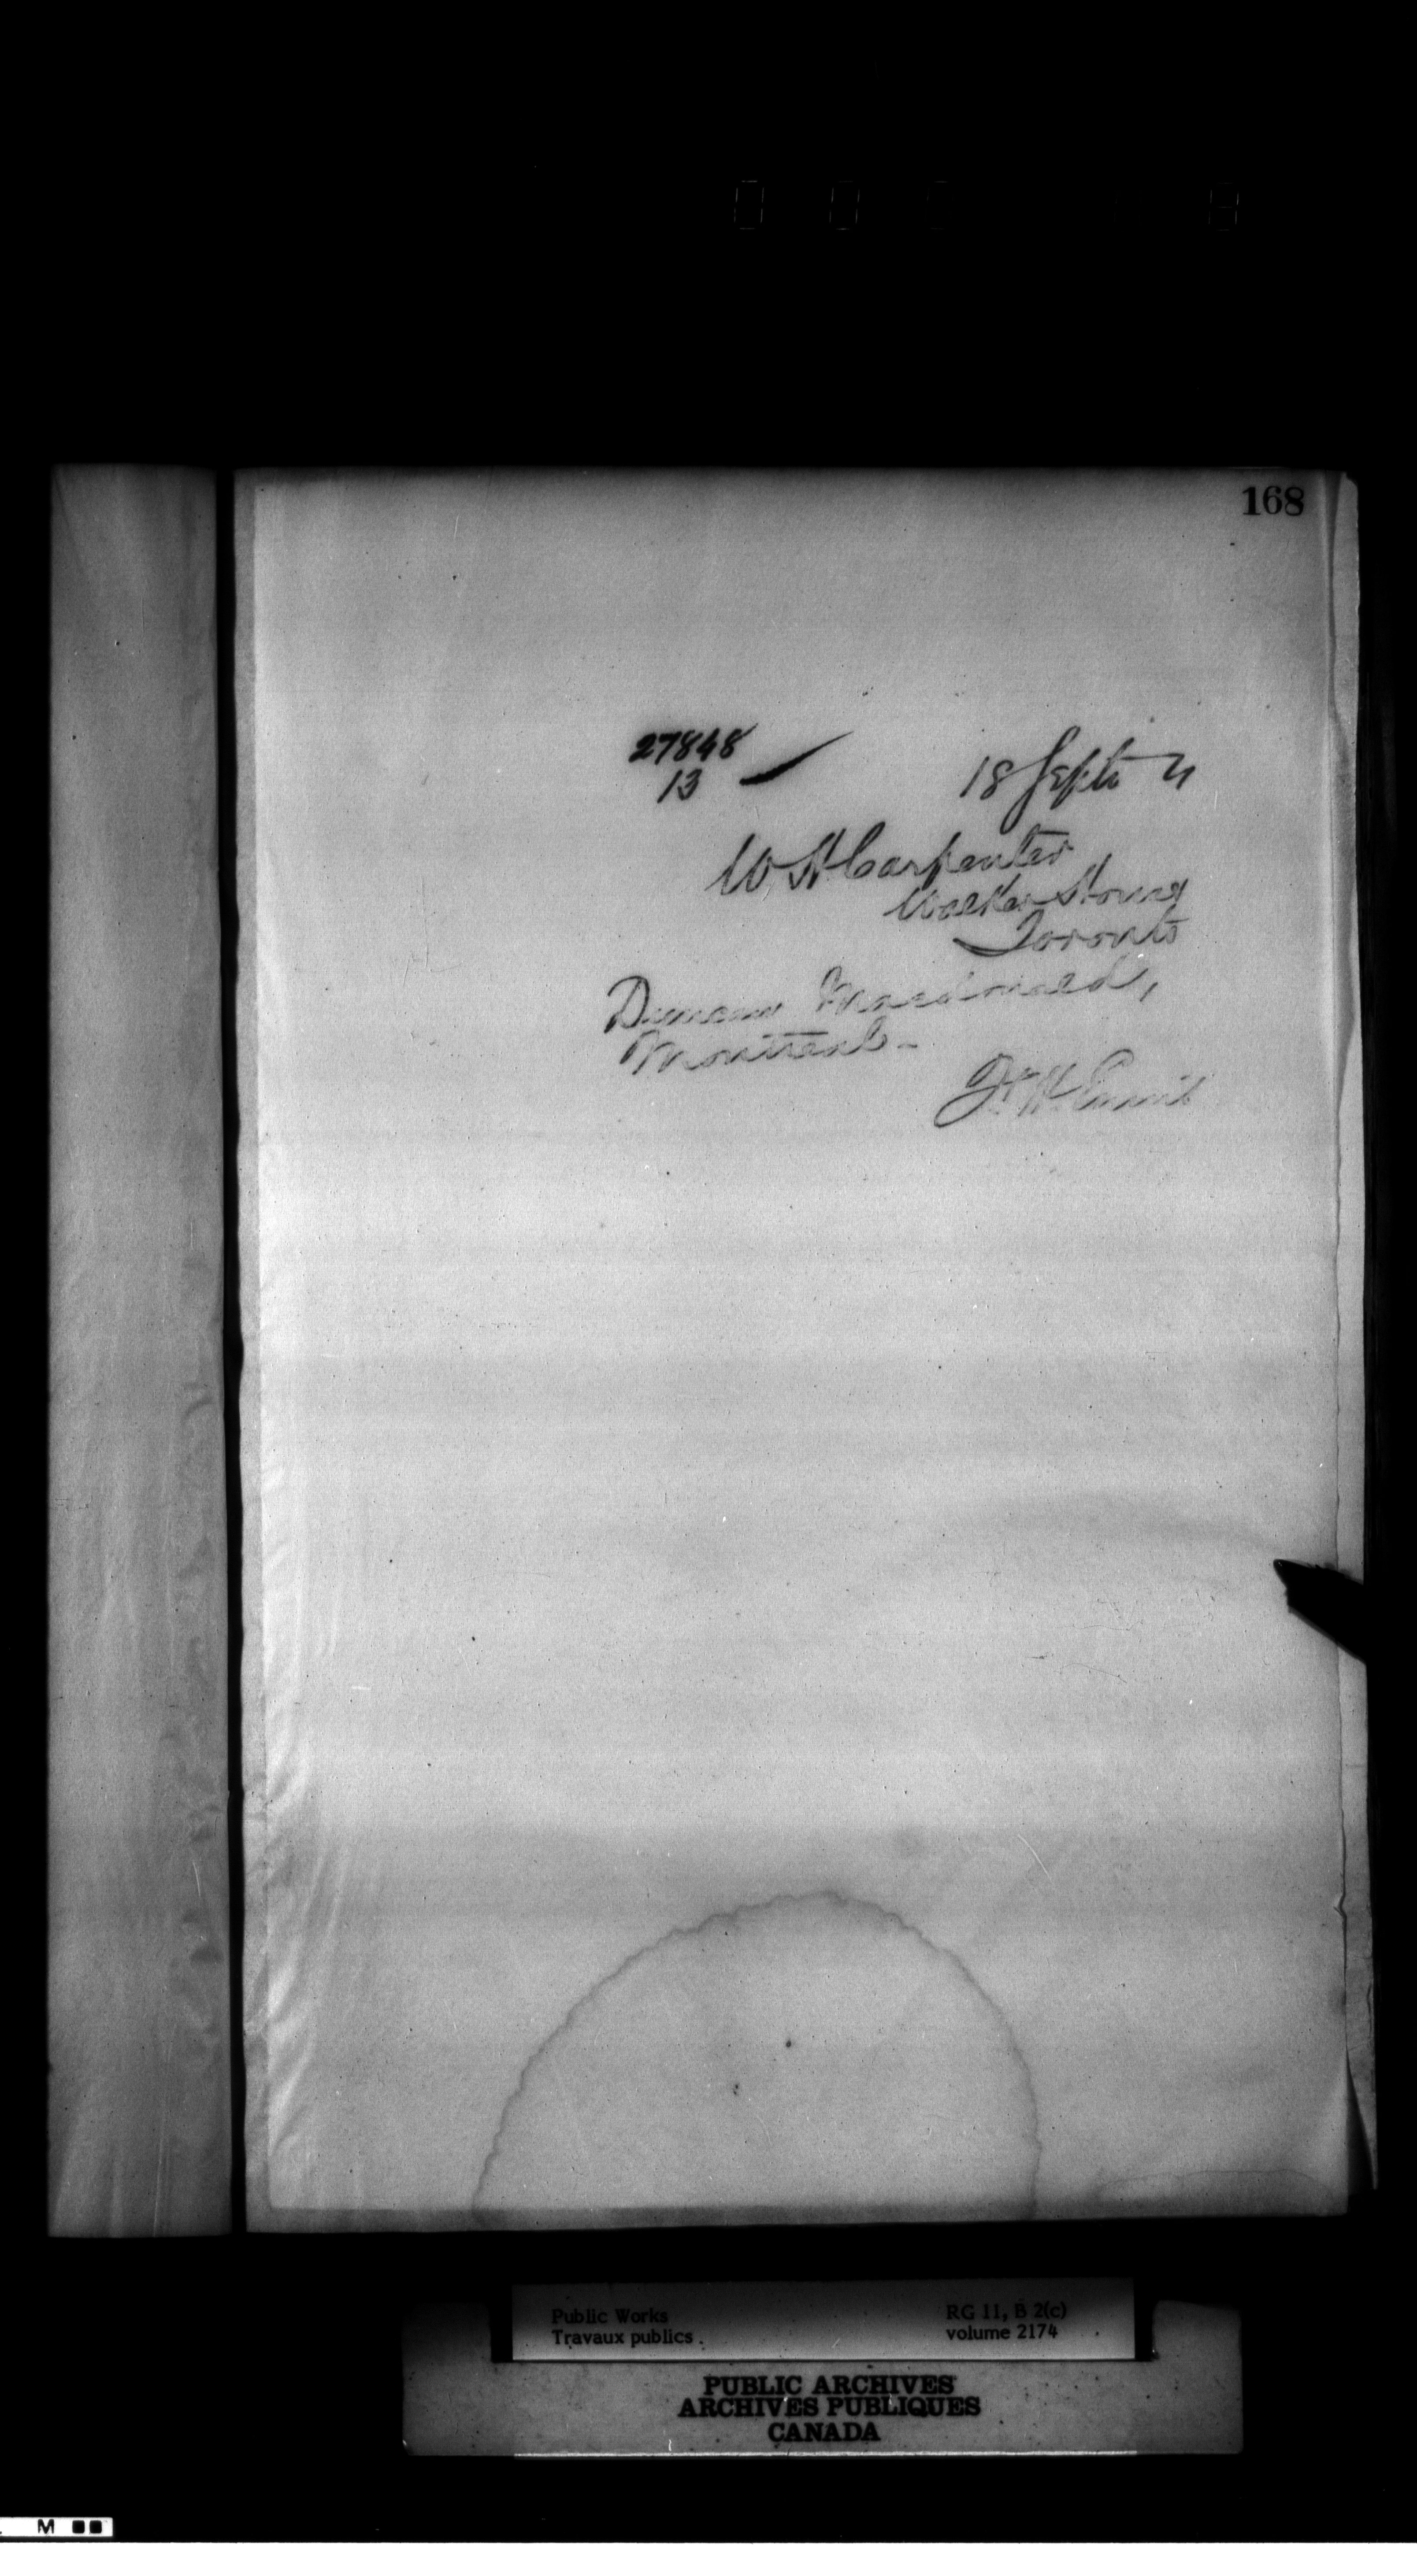 168
27848
13
18 Sept
W H Carpenter
Walker House
Toronto
Duncan Macdonald,
Montreal -
F. H. Ennis
Public Works
Travaux publics
RG 11, B 2(c)
volume 2174
PUBLIC ARCHIVES
ARCHIVES PUBLIQUES
CANADA
M